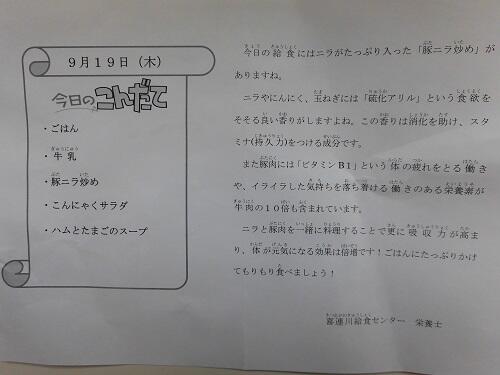 9月19日（木）
今日のこんだて
・ごはん
・牛乳
・豚ニラ炒め
・こんにゃくサラダ
・ハムとたまごのスープ
今日の給食にはニラがたっぷり入った「豚ニラ炒め」が
ありますね。
ニラやにんにく、玉ねぎには「硫化アリル」という食欲を
そそる良い香りがしますよね。この香りは消化を助け、スタ
ミナ(持久力)をつける成分です。
また豚肉には「ビタミンB1」という体の疲れをとる働き
や、イライラした気持ちを落ち着ける働きのある栄養素が
牛肉の10倍も含まれています。
ニラと豚肉を一緒に料理することで更に吸収力が高ま
り、体が元気になる効果は倍増です！ごはんにたっぷりかけ
てもりもり食べましょう！
喜連川給食センター　栄養士